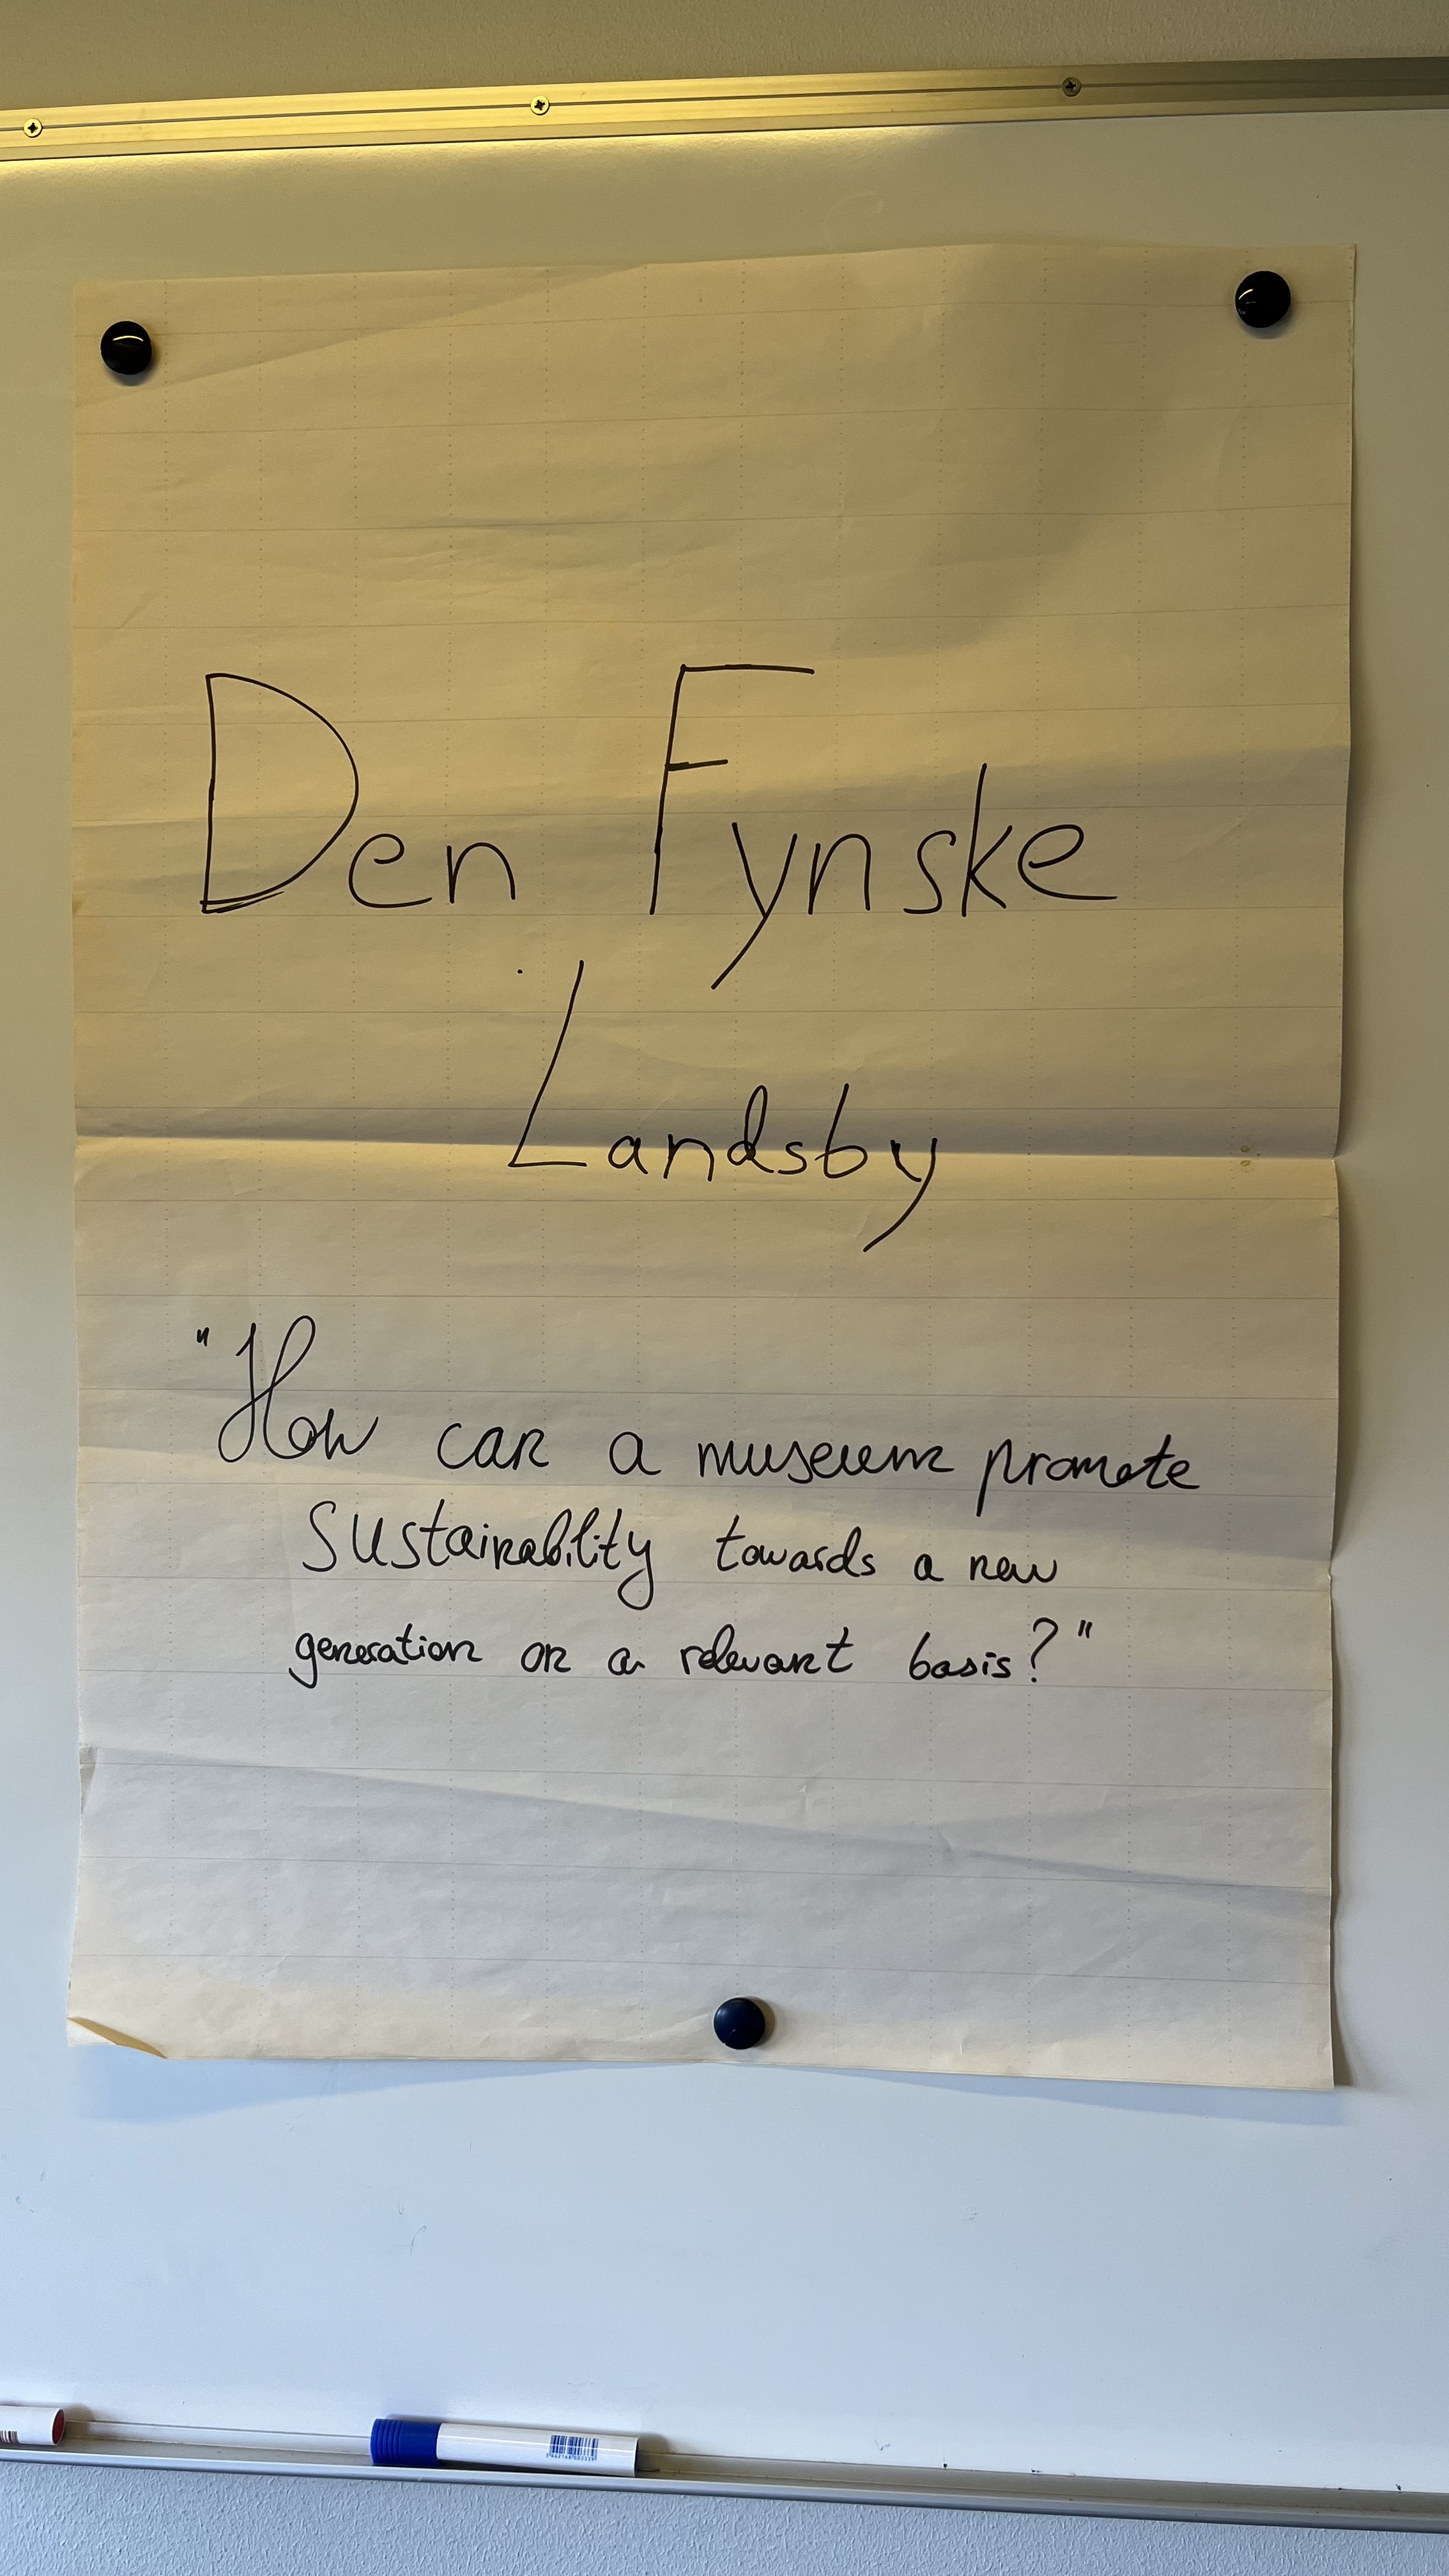 Den Fynske
Landsby
"How can a museum promote
Sustainability towards a new
generation on a relevant basis?"